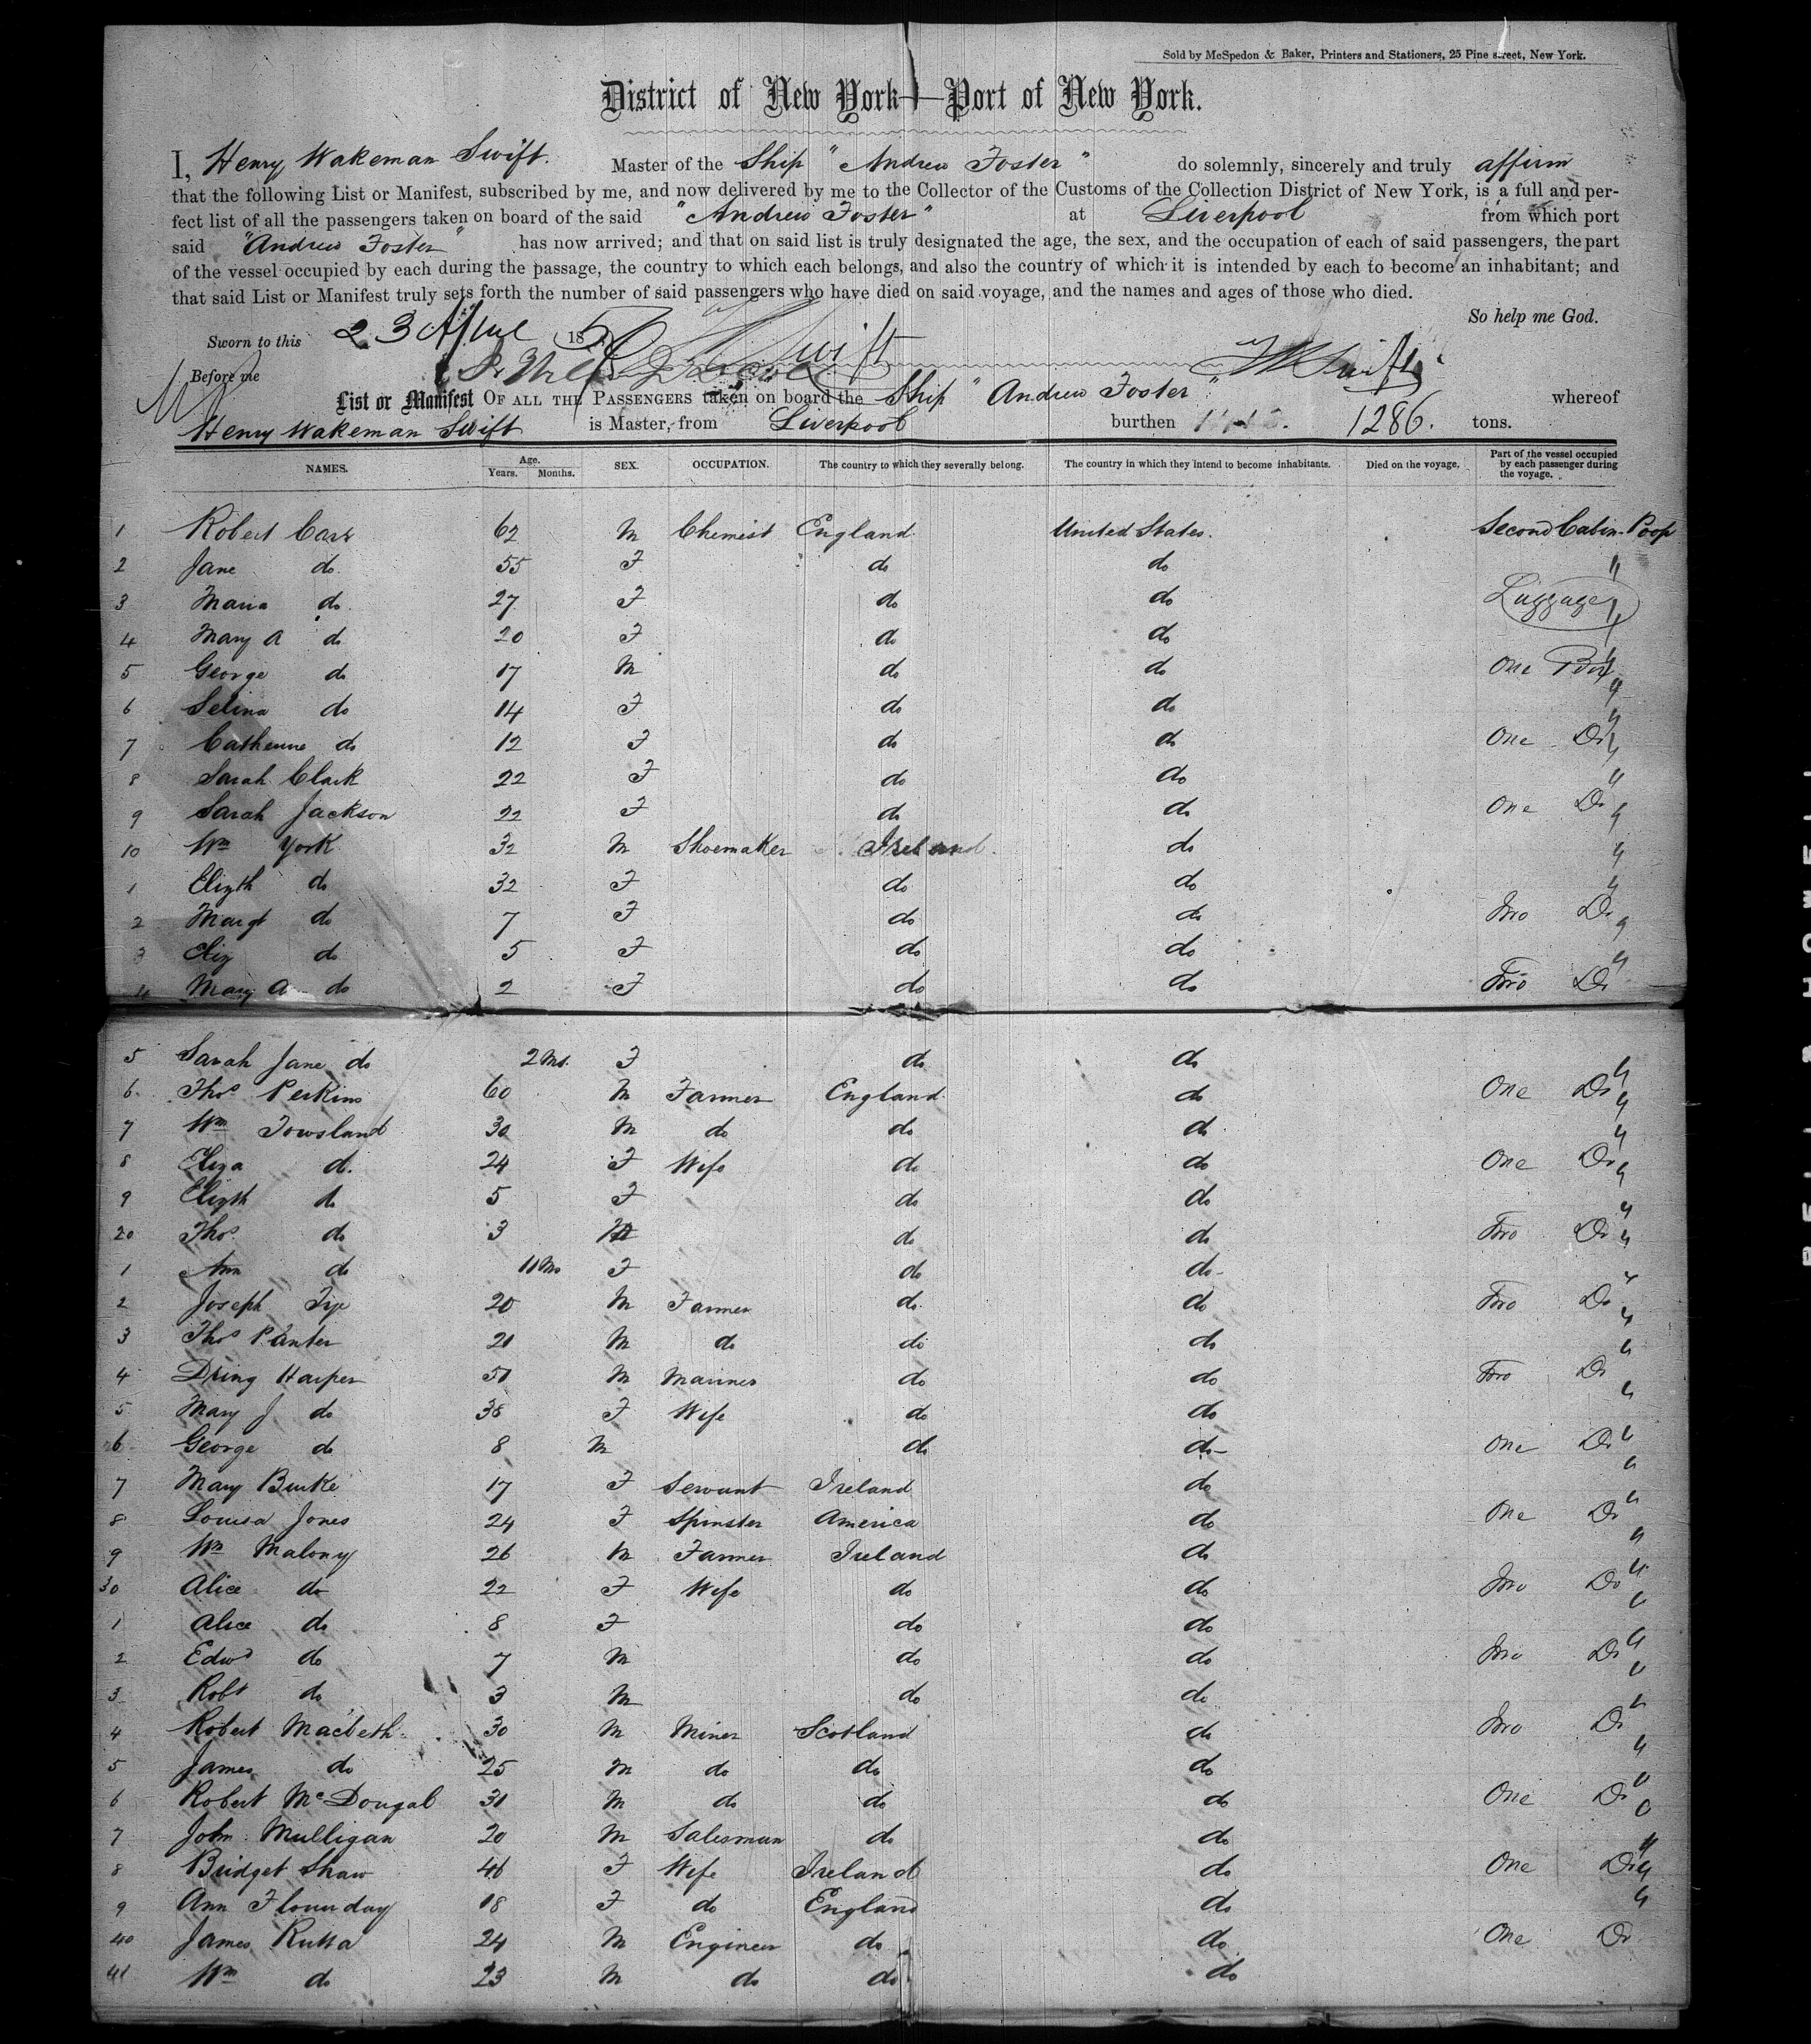 Sold by McSpedon & Baker, Printers and Stationers, 25 Pine street, New York.
District of New York—Port of New York.
I, Henry Wakeman Swift. Master of the Ship "Andrew Foster" do solemnly, sincerely and truly affirm
that the following List or Manifest, subscribed by me, and now delivered by me to the Collector of the Customs of the Collection District of New York, is a full and per-
fect list of all the passengers taken on board of the said "Andrew Foster" at Liverpool from which port
said "Andrew Foster" has now arrived; and that on said list is truly designated the age, the sex, and the occupation of each of said passengers, the part
of the vessel occupied by each during the passage, the country to which each belongs, and also the country of which it is intended by each to become an inhabitant; and
that said List or Manifest truly sets forth the number of said passengers who have died on said voyage, and the names and ages of those who died.
So help me God.
Sworn to this 23 April 185 Swift
Before me HW Swift
List or Manifest OF ALL THE PASSENGERS taken on board the Ship "Andrew Foster" whereof
Henry Wakeman Swift is Master, from Liverpool burthen 1286. tons.
NAMES. Age. Years. Months. SEX. OCCUPATION. The country to which they severally belong. The country in which they intend to become inhabitants. Died on the voyage. Part of the vessel occupied by each passenger during the voyage.
1 Robert Carr 62 M Chemist England United States. Second Cabin-Poop
2 Jane do 55 F do do "
3 Maria do 27 F do do Luggage "
4 Mary A do 20 F do do "
5 George do 17 M do do One Box "
6 Selina do 14 F do do "
7 Catherine do 12 F do do One Do "
8 Sarah Clark 22 F do do "
9 Sarah Jackson 22 F do do One Do "
10 Wm York 32 M Shoemaker Ireland. do "
1 Elizth do 32 F do do "
2 Margt do 7 F do do Two Do "
3 Eliz do 5 F do do "
4 Mary A do 2 F do do Two Do
5 Sarah Jane do 2 Ms. F do do "
6 Thos Perkins 60 M Farmer England do One Do "
7 Wm Towsland 30 M do do do "
8 Eliza do 24 F Wife do do One Do "
9 Elizth do 5 F do do "
20 Thos do 3 M do do Two Do "
1 Ann do 11 Mo F do do "
2 Joseph Tye 20 M Farmer do do Two Do "
3 Thos Panter 21 M do do do "
4 Dring Harper 51 M Mariner do do Two Do "
5 Mary J do 38 F Wife do do "
26 George do 8 M do do One Do "
7 Mary Burke 17 F Servant Ireland do "
8 Louisa Jones 24 F Spinster America do One Do "
9 Wm Malony 26 M Farmer Ireland do "
30 Alice do 22 F Wife do do Two Do "
1 Alice do 8 F do do "
2 Edwd do 7 M do do Two Do "
3 Robt do 3 M do do "
4 Robert Macbeth 30 M Miner Scotland do Two Do "
5 James do 25 M do do do "
6 Robert McDougal 31 M do do do One Do "
7 John Mulligan 20 M Salesman do do "
8 Bridget Shaw 46 F Wife Ireland do One Do "
9 Ann Flounday 18 F do England do "
40 James Rutta 24 M Engineer do do One Do
41 Wm do 23 M do do do